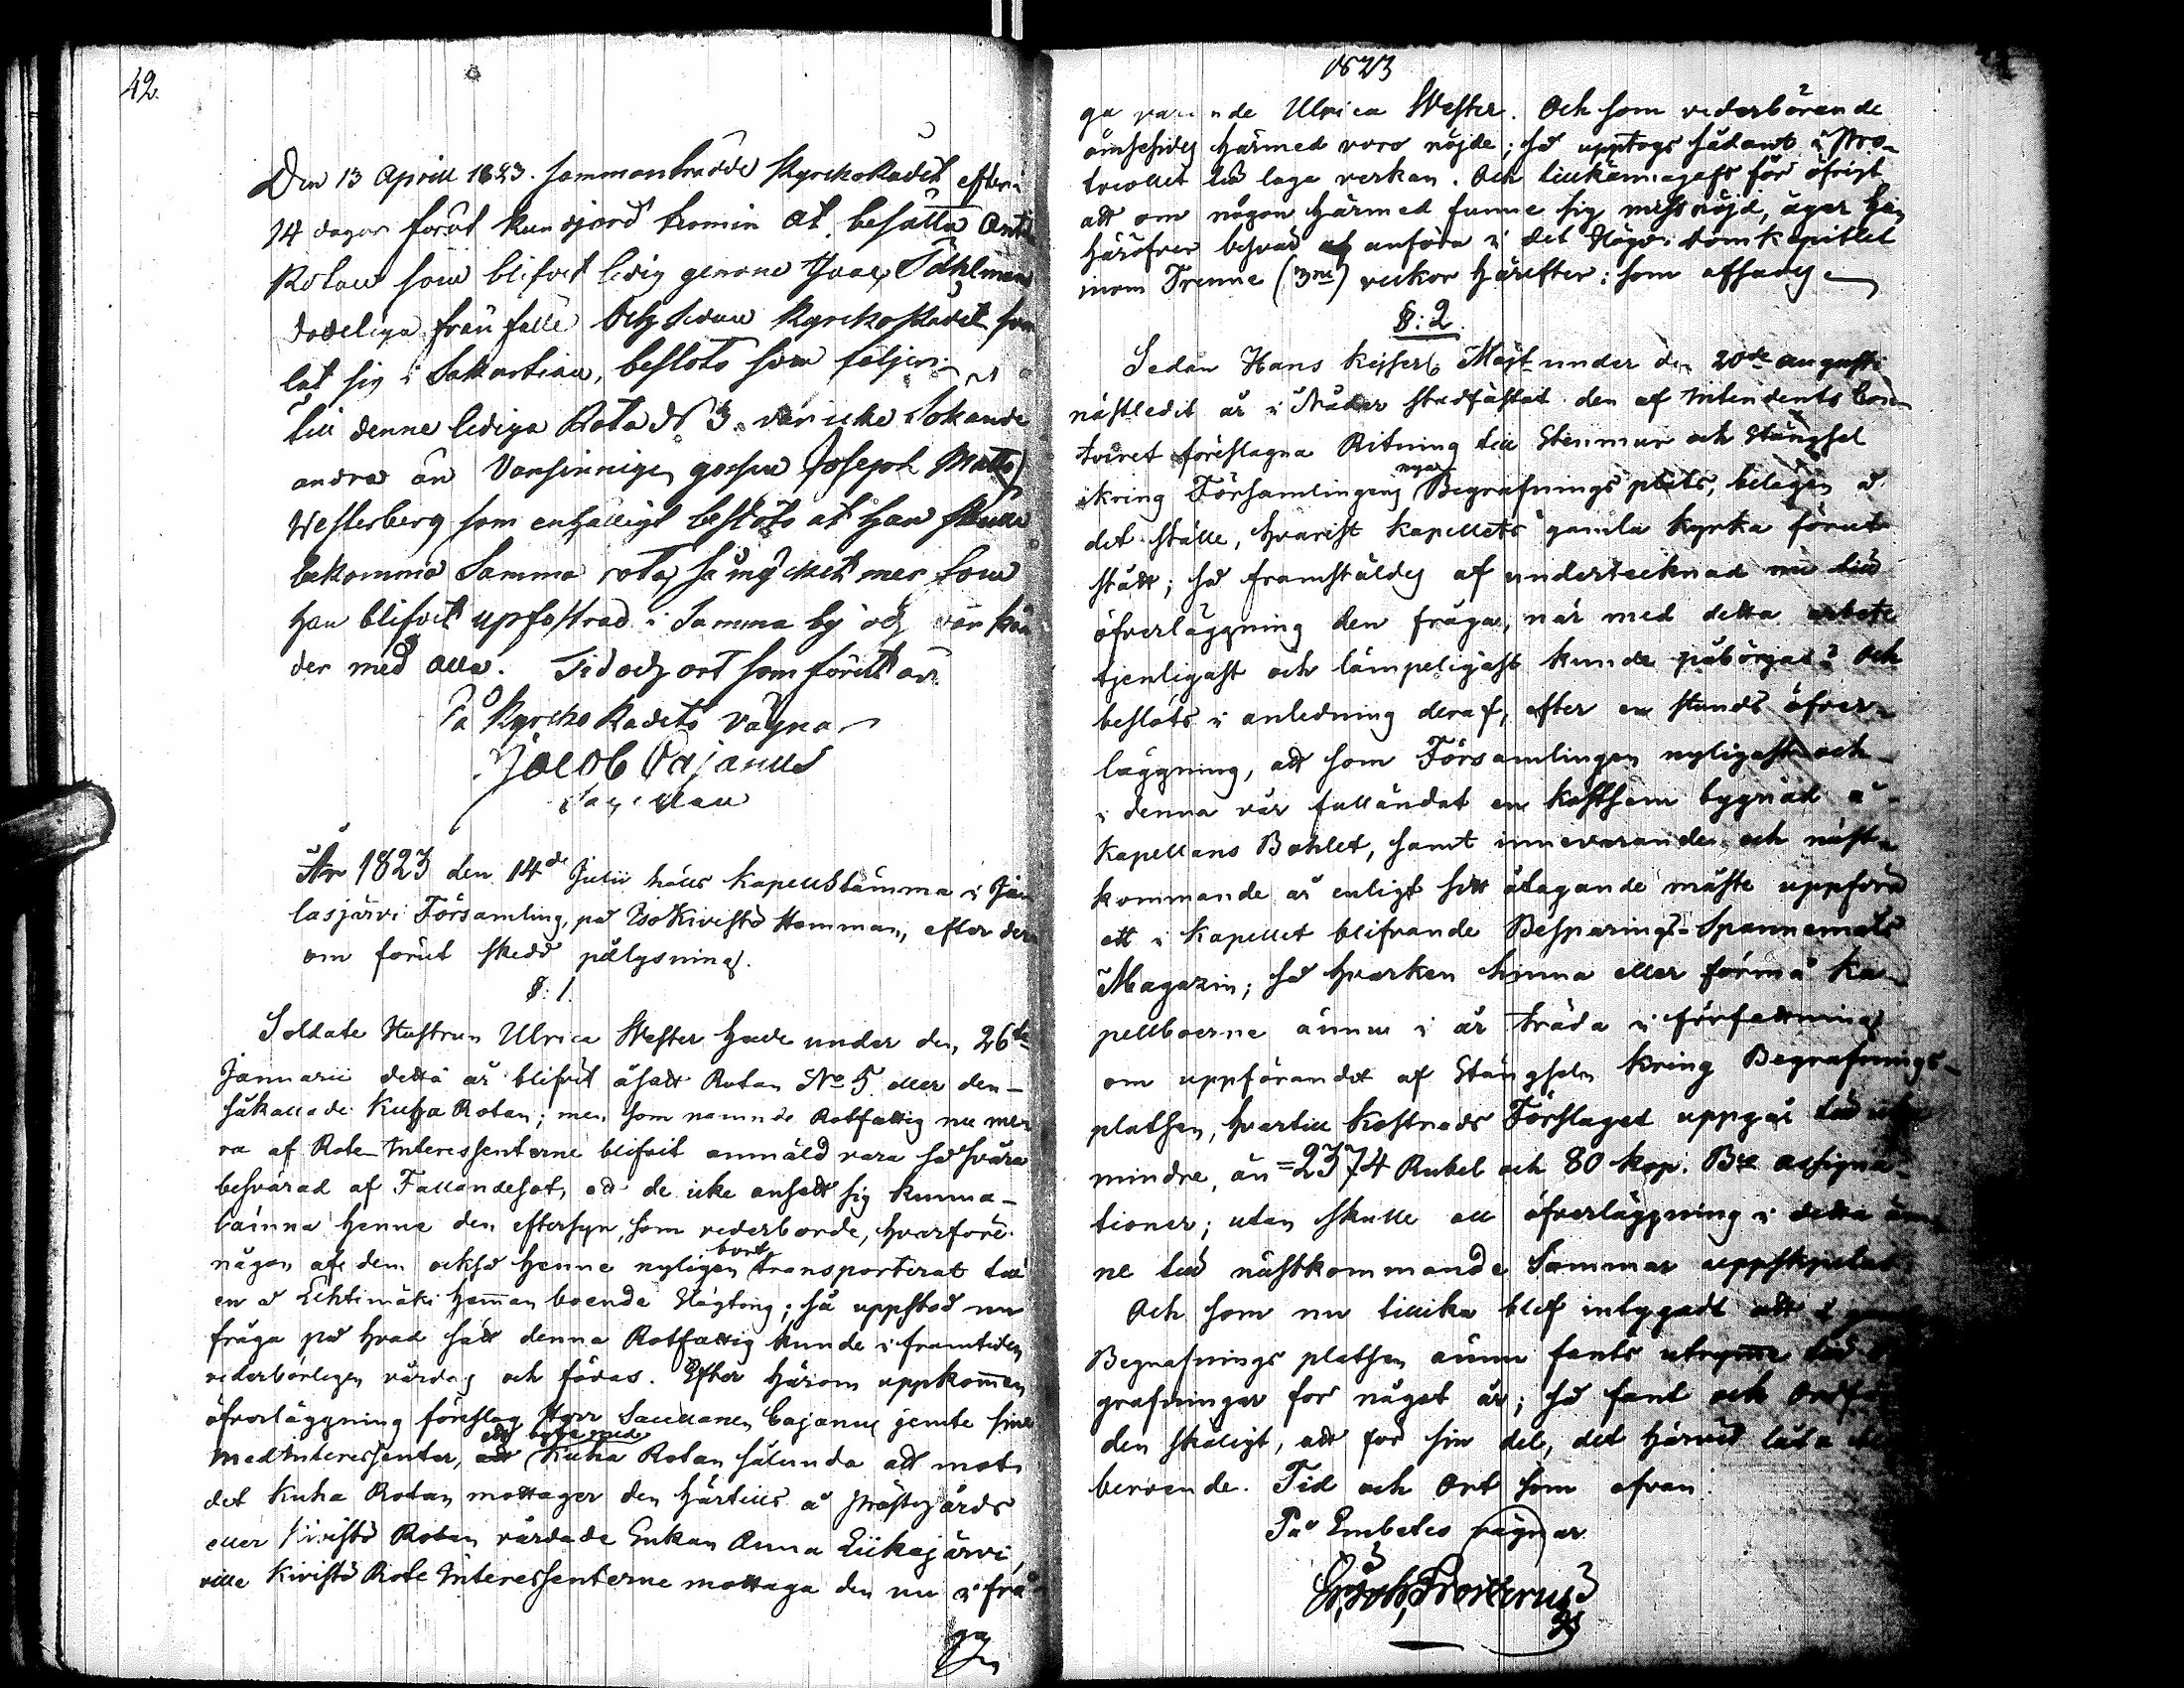 42.
Den 13 Aprill 1823. sammanträdde KyrckoRådet efter
14 dagar forut kundgjord termin at besätta
Rotan som blifvit ledig genom
dödeliga frånfälle och sedan KyrckoRådet
lat sig i Sakerstian, beslots som följer:
till denne lediga Rota N. 3. var icke Sökande
andra än Vansinnige gossen Joseph Matts
Westerberg som enhälligt beslöts at han skulle
bekomma Samma rota, så mycket mer som
han blifvit upfostrad i Samma by och var kän
der med alla. Tid och ort som förut är.
På KyrckoRådets vägnar
Jacob Cajanus
År 1823 den 14de Julii hölls Kapellstämma i Ja
lasjärvi Församling, på IsoKivistö Hemman, efter der
om förut skedd pålysning.
§: 1.
Soldate Hustrun Ulrica Wester hade under den 26te
Januarii detta år blifvit åsatt Rotan No 5. eller den-
såkallade Kuha Rotan; men som namnde Rotfattig nu mer
ra af Rote-Interessenterne blifvit anmäld vara så svåra
besvärad af Fallandesot, att de icke ansett sig kunna-
lämna henne den eftersyn, som vederborde, hvarföre
någon af dem också henne nyligen bort transporterat till
en å Lehtimäki hemman boende Hägting; så uppstod nu
fråga på hvad sätt denna Rotfattig kunde i framtiden
vederbörligen vårdas och födas. Efter härom uppkommen
öfverläggning föreslog Herr Sacellanen Cajanus jemte sine
MedInteressenter, att byta med Kuha Rotan sålunda att mot
det Kuha Rotan mottager den härtills å Prästgårds
eller Kivistö Rotan vårdade Enkan Anna Liikajärvi,
ville Kivistö Rote Interessenterne mottaga den nu i frå
ga
1823
ga varande Ulrica Wester. Och som vederbörande
ömsesides härmed voro nöjde; så upptogs sådant i Pro-
tocollet till laga verkan. Och tillkännagafs för öfrigt
att om någon härmed funne sig missnöjd, äger han
häröfver besvär anföra i det Högv: Domkapitlet
inom Trenne (3ne) veckor härefter: som afsades.
§: 2.
Sedan Hans Kejserl. Majt under den 20de augusti
nästledit år i Nåder stadfästat den af Intendents Con
toiret föreslagna Ritning till Stenmur och Stängsel
ikring Församlingens nya Begrafningsplats, belägen å
det ställe, hvarest Kapellets gamla Kyrka förut
stått; så framstäldes af undertecknad nu till
öfverläggning den frågan, när med detta arbete
tjenligast och lämpeligast kunde påbörjas? Och
beslöts i anledning deraf, efter en stunds öfver-
läggning, att som Församlingen nyligast och
i denna vår fulländat en kostsam bygnad å
Kapellans Bohlet, samt innevarande och näst-
kommande år enligt sitt åtagande måste uppföra
ett i Kapellet blifvande Besparings-Spannemåls
Magazin; så hvarken hinna eller förmå Ka-
pellboerne ännu i år träda i författning
om uppförandet af Stängseln kring Begrafnings-
platsen, hvartill Kostnads Förslaget uppgår till icke
mindre, än =2374 Rubel och 80 kop. Bco assigna-
tioner; utan skulle all öfverläggning i detta äm
ne till nästkommande Sommar uppskjutas
Och som nu tillika blef intygadt att å
Begrafnings platsen ännu fants utrymme till
grafningar for något år; så fant och
den skäligt, att for sin del, det härvid låta
beroende. Tid och Ort som ofvan.
På Embetes vägnar